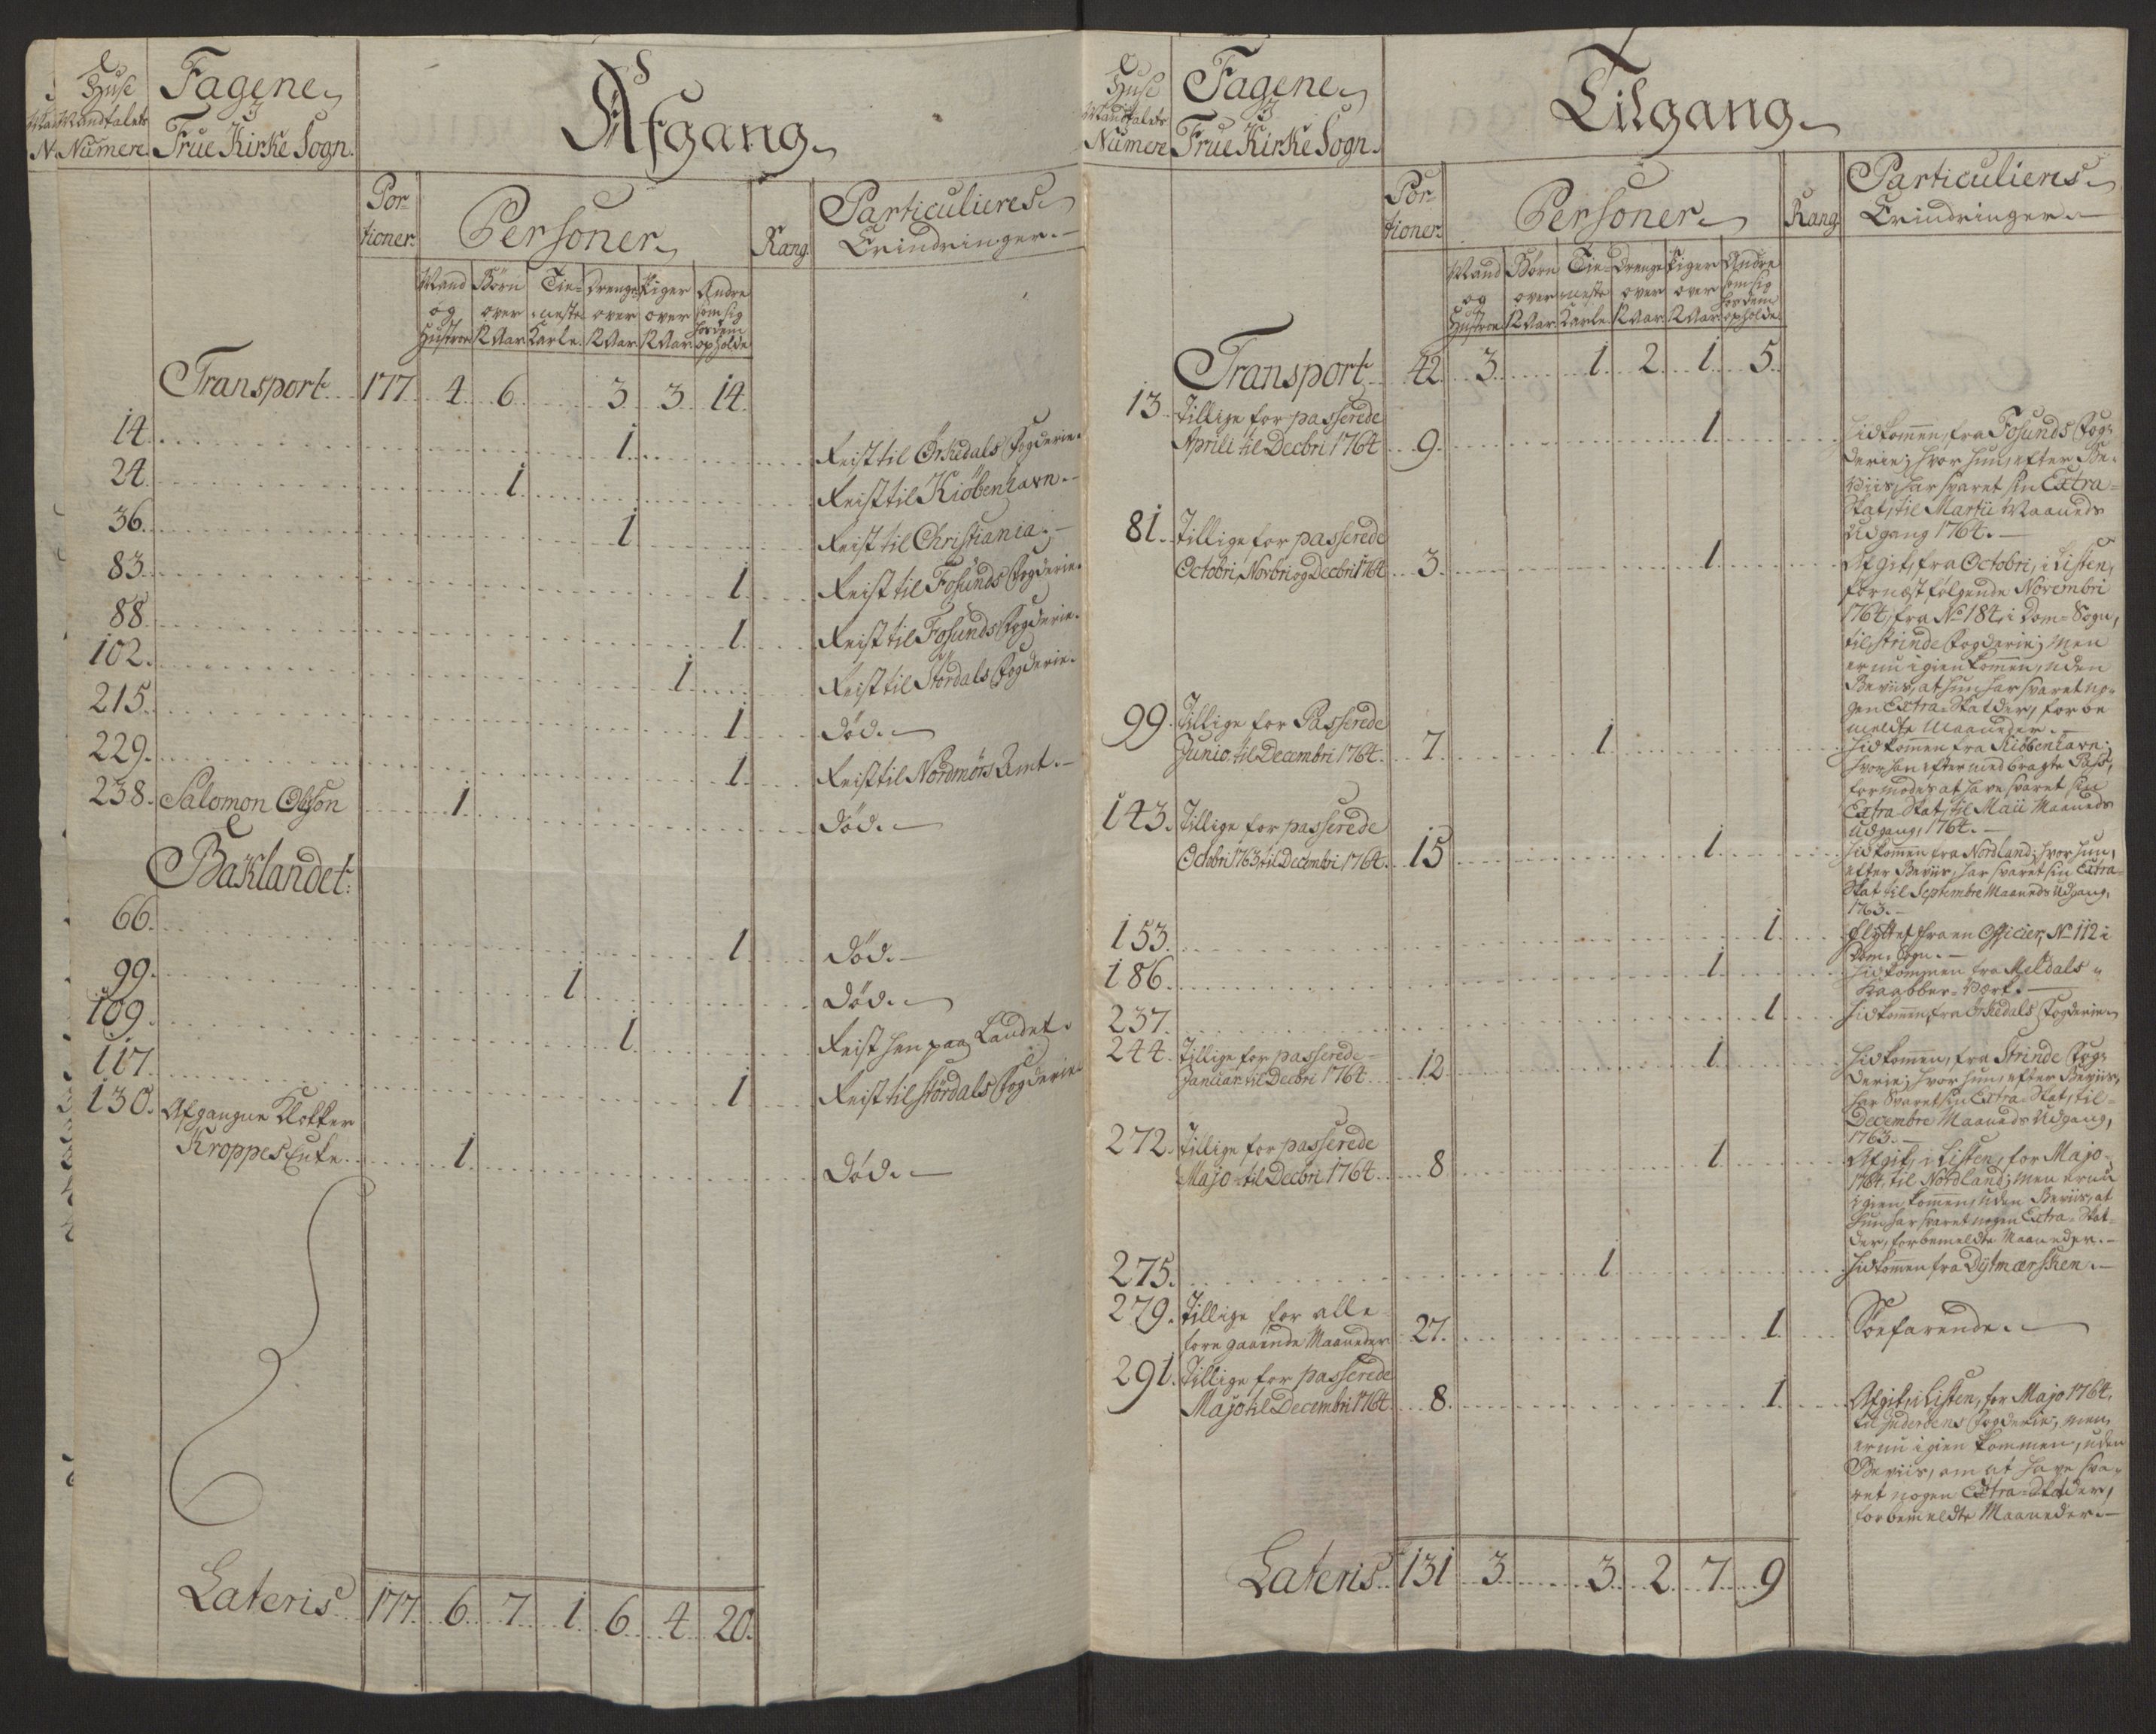 Huse
Mandtalets
Numere
Fagene
3
Frue Kirke Sogn.
Afgang
Por-
tioner.
Personer
Rang.
Particulieres
Erindringer.
Mand og Hustroe
Börn over 12 Aar
Tie-neste Karle.
Drenge over 12 Aar
Piger over 12 Aar
Andre som sig hos dem opholde
Transport 177. 4. 6. 3. 3. 14.
14. 1. Reist til Örkedals Fogderie.
24. 1. Reist til Kiöbenhavn.
36. 1. Reist til Christiania.
83. 1. Reist til Fosunds Fogderie.
88. 1. Reist til Fosunds Fogderie.
102. 1. Reist til Stördals Fogderie.
215. 1. Död.
229. 1. Reist til Nordmörs Amt.
238. Salomon Olsson 1. Död.
Baklandet:
66. 1. Död.
99. 1. Död.
109. 1. Reist hen paa Landet.
117. 1. Reist til Stördals Fogderie
130. Afgangne Klokker
Kroppes Enke 1. Död.
Lateris 177. 6. 7. 1. 6. 4. 20.
Huse
Mandtalets
Numere
Fagene
3
Frue Kirke Sogn.
Tilgang
Por-
tioner.
Personer
Rang
Particulieres
Erindringer.
Mand og Hustroe
Börn over 12 Aar
Tie-neste Karle.
Drenge over 12 Aar
Piger over 12 Aar
Andre som sig hos dem opholde
Transport 42. 3. 1. 2. 1. 5.
13. Tillige for passerede
Aprili til Decbri 1764 9. 1.
hidkommen, fra Fosunds Fog-
derie; hvor hun, efter Be-
viis, har svaret sin Extra-
Skat, til Martii Maaneds
Udgang 1764.
81. Tillige for passerede
Octobri, Novbri og Decbri 1764 3. 1.
Afgit, fra Octobri, i Listen,
for næstfölgende Novembri
1764, fra No 184, i Dom-Sogn,
til Strinde Fogderie; men
er nu igien kommen, uden
Beviis, at hun har svaret no-
gen Extra-Skat der, for be
meldte Maaneder.
99. Tillige for Passerede
Junio til Decembri 1764. 7. 1.
hidkommen fra Kiöbenhavn;
hvor han efter medbragte Pass,
formodes at have svaret sin
Extra-Skat, til Maii Maaneds
Udgang, 1764.
143. Tillige for passerede
Octobri 1763 til Decembri 1764. 15 1.
hidkommen fra Nordland; hvor hun,
efter Beviis, har svaret sin Extra-
Skat til Septembre Maaneds Udgang,
1763.
153. 1. flyttet fra en Officier, No 112 i
Dom-Sogn.
186. 1. hidkommen fra Meldals
Kaabber-Værk.
237. 1. hidkommen, fra Örkedals Fogderie
244. Tillige for passerede
Januar. til Decbri 1764. 12 1.
hidkommen, fra Strinde Fog-
derie; hvor hun, efter Beviis,
har Svaret sin Extra-Skat, til
Decembre Maaneds Udgang,
1763.
272. Tillige for passerede
Majo til Decbri 1764. 8 1.
Afgit, i Listen, for Majo
1764, til Nordland; men er nu
igien kommen, uden Beviis, at
hun har svaret nogen Extra-Skat
der, for bemeldte Maaneder.
275. 1. hidkommen fra Dytmærsken.
279. Tillige for alle
foregaaende Maaneder 27. 1. Söefarende.
291. Tillige for passerede
Majo til Decembri 1764. 8. 1.
Afgit, i Listen, for Majo 1764,
til Inderöens Fogderie, men,
er nu igien kommen, uden
Beviis, om at have sva-
ret nogen Extra-Skat der,
for bemeldte Maaneder.
Lateris 131 3. 3. 2. 7. 9